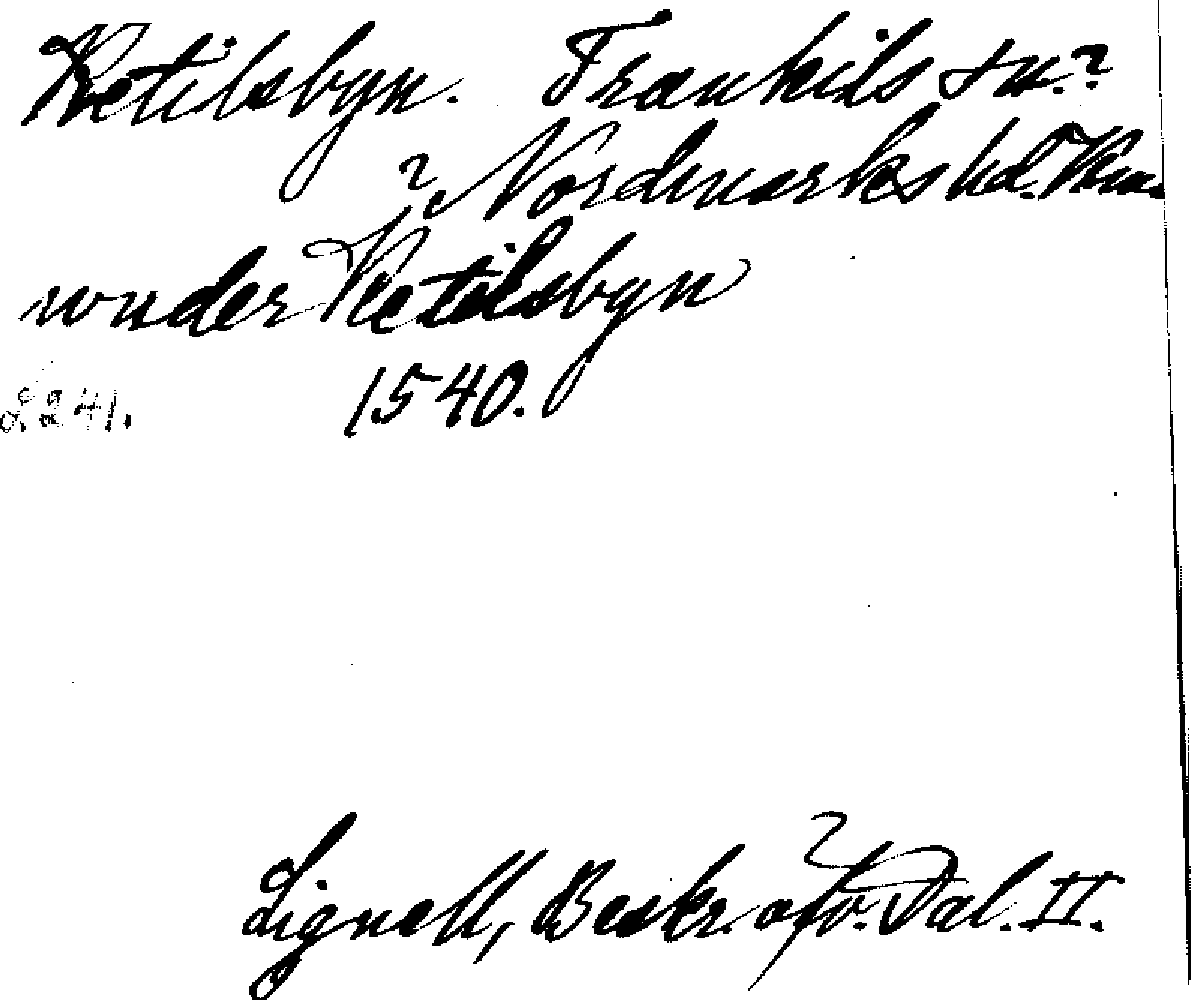 Ketilsbyn. Trankils sn.?
? Nordmarks hd. Vrm.
under Ketilsbyn
S 241. 1540.
Lignell, Beskr. öfv. Dal. II.